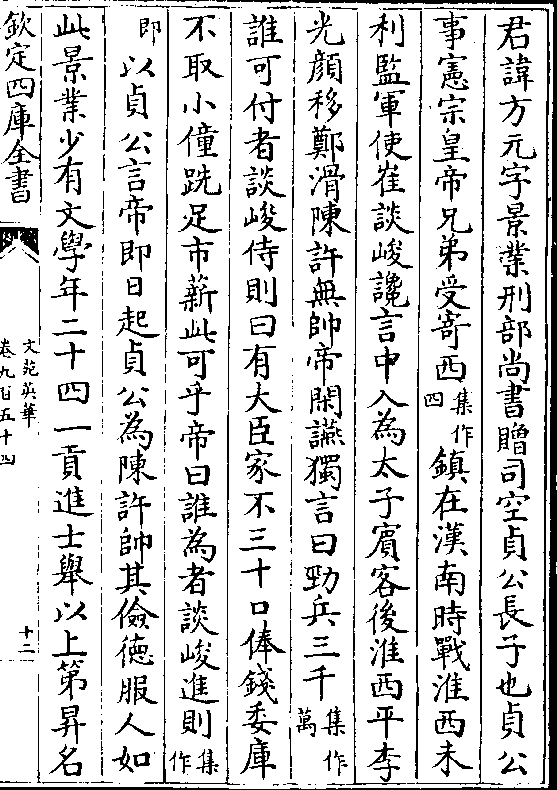 君諱方元字景業刑部尚書贈司空貞公長子也貞公
事憲宗皇帝兄弟受寄西集作四鎮在漢南時戰淮西未
利監軍使崔談峻讒言中入為太子賓客後淮西平李
光顔移鄭滑陳許無帥帝閑讌獨言曰勁兵三千集作萬
誰可付者談峻侍則曰有大臣家不三十口俸錢委庫
不取小僮跣足市薪此可乎帝曰誰為者談峻進則集作
即以貞公言帝即日起貞公為陳許帥其儉德服人如
此景業少有文學年二十四一貢進士舉以上第昇名
欽定四庫全書
文苑英華
卷九百五十四
十二